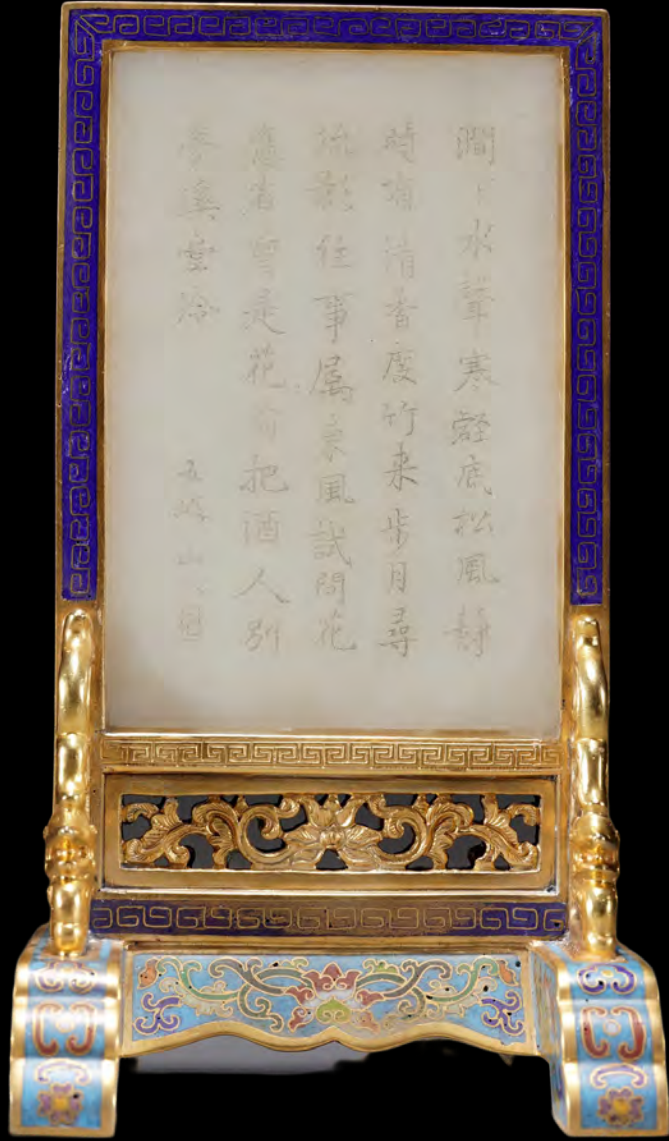 澗下水聲寒壑底松風靜
時有清香度竹來步月尋
疏影往事屬東風試問花
應省曾是花前把酒人別
夢溪堂冷
五峰山人